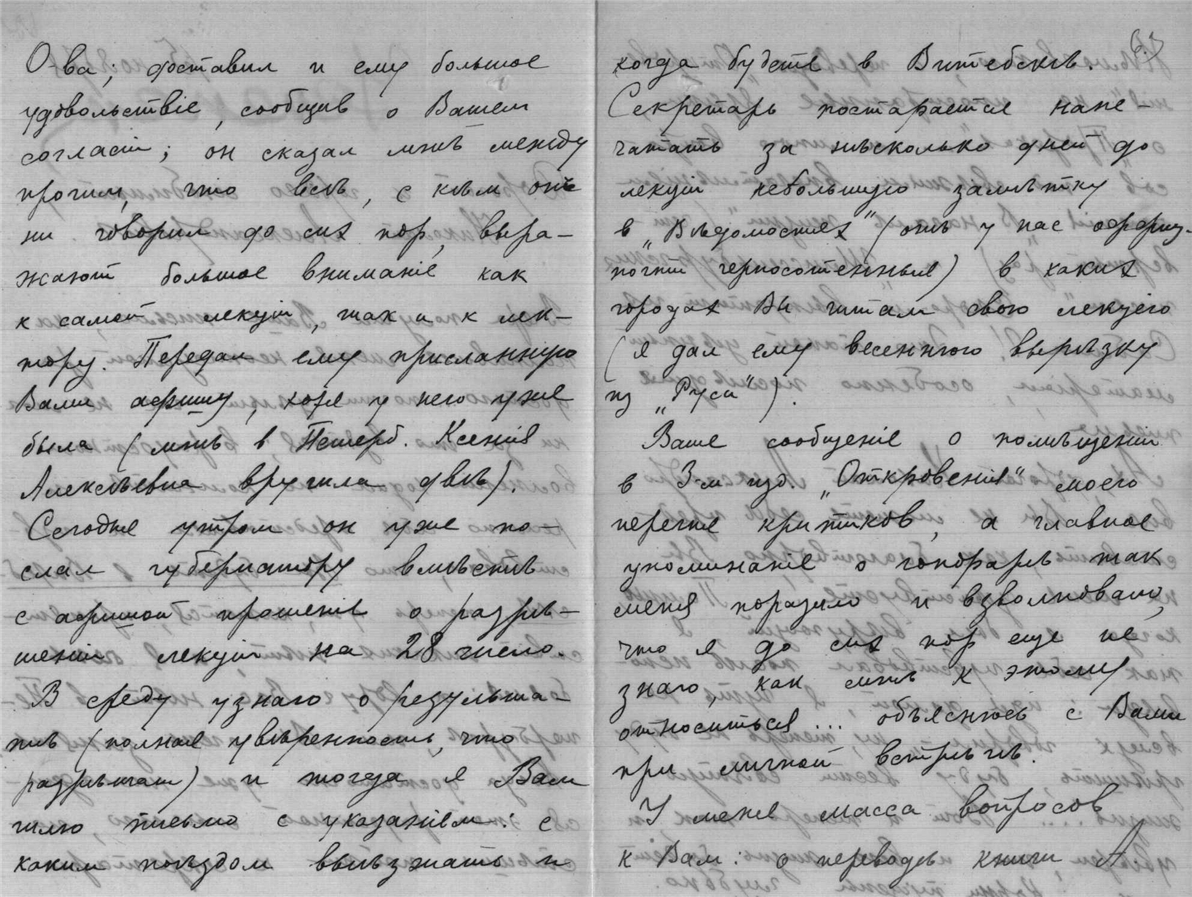 О-ва; доставил и ему большое
удовольствіе, сообщив о Вашем
согласіи; он сказал мнѣ между
прочим, что всѣ, с кѣм онъ
ни говорил до сих пор, выра-
жают большое вниманіе как
к самой лекціи, так и к лек-
тору. Передал ему присланную
Вами афишу, хотя у него уже
была (мнѣ в Петерб. Ксенія
Алексѣевна вручила двѣ).
Сегодня утром он уже по-
слал губернатору вмѣстѣ
с афишой прошеніе о разрѣ-
шеніи лекціи на 28 число.
В среду узнаю о результа-
тѣ (полная увѣренность, что
разрѣшат) и тогда я Вам
шлю письмо с указаніем: с
каким поѣздом выѣзжать и
когда будете в Витебскѣ.
Секретарь постарается напе-
чатать за нѣсколько дней до
лекціи небольшую замѣтку
в „Вѣдомостях" (онѣ у нас оффиц.-
погти черносотенныя) в каких
городах Вы читали свою лекцію
(я дал ему весеннюю вырѣзку
из „Руси").
Ваше сообщеніе о помѣщеніи
в 3-м изд. „Откровенія" моего
перечня критиков, а главное
упоминаніе о гонорарѣ так
меня поразило и взволновало,
что я до сих пор еще не
знаю, как мнѣ к этому
относиться... объяснюсь с Вами
при личной встрѣчѣ.
У меня масса вопросов
к Вам: о переводѣ книги А